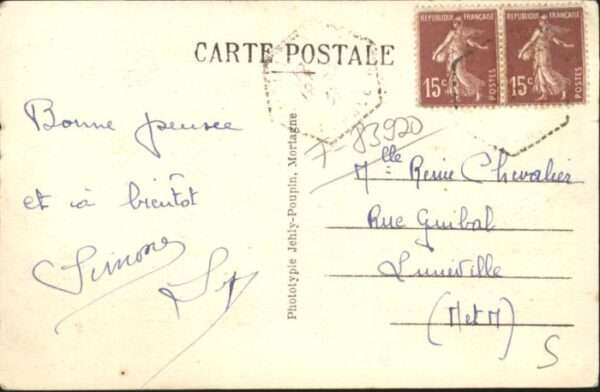 CARTE POSTALE
REPUBLIQUE FRANÇAISE
15c
POSTES
REPUBLIQUE FRANÇAISE
15c
POSTES
Bonne pensée
et à bientôt
Simone
Phototypie Jehly-Poupin, Mortagne
F-83920
Mlle Renée Chevalier
Rue Guibal
Lunéville
(M et M)
S